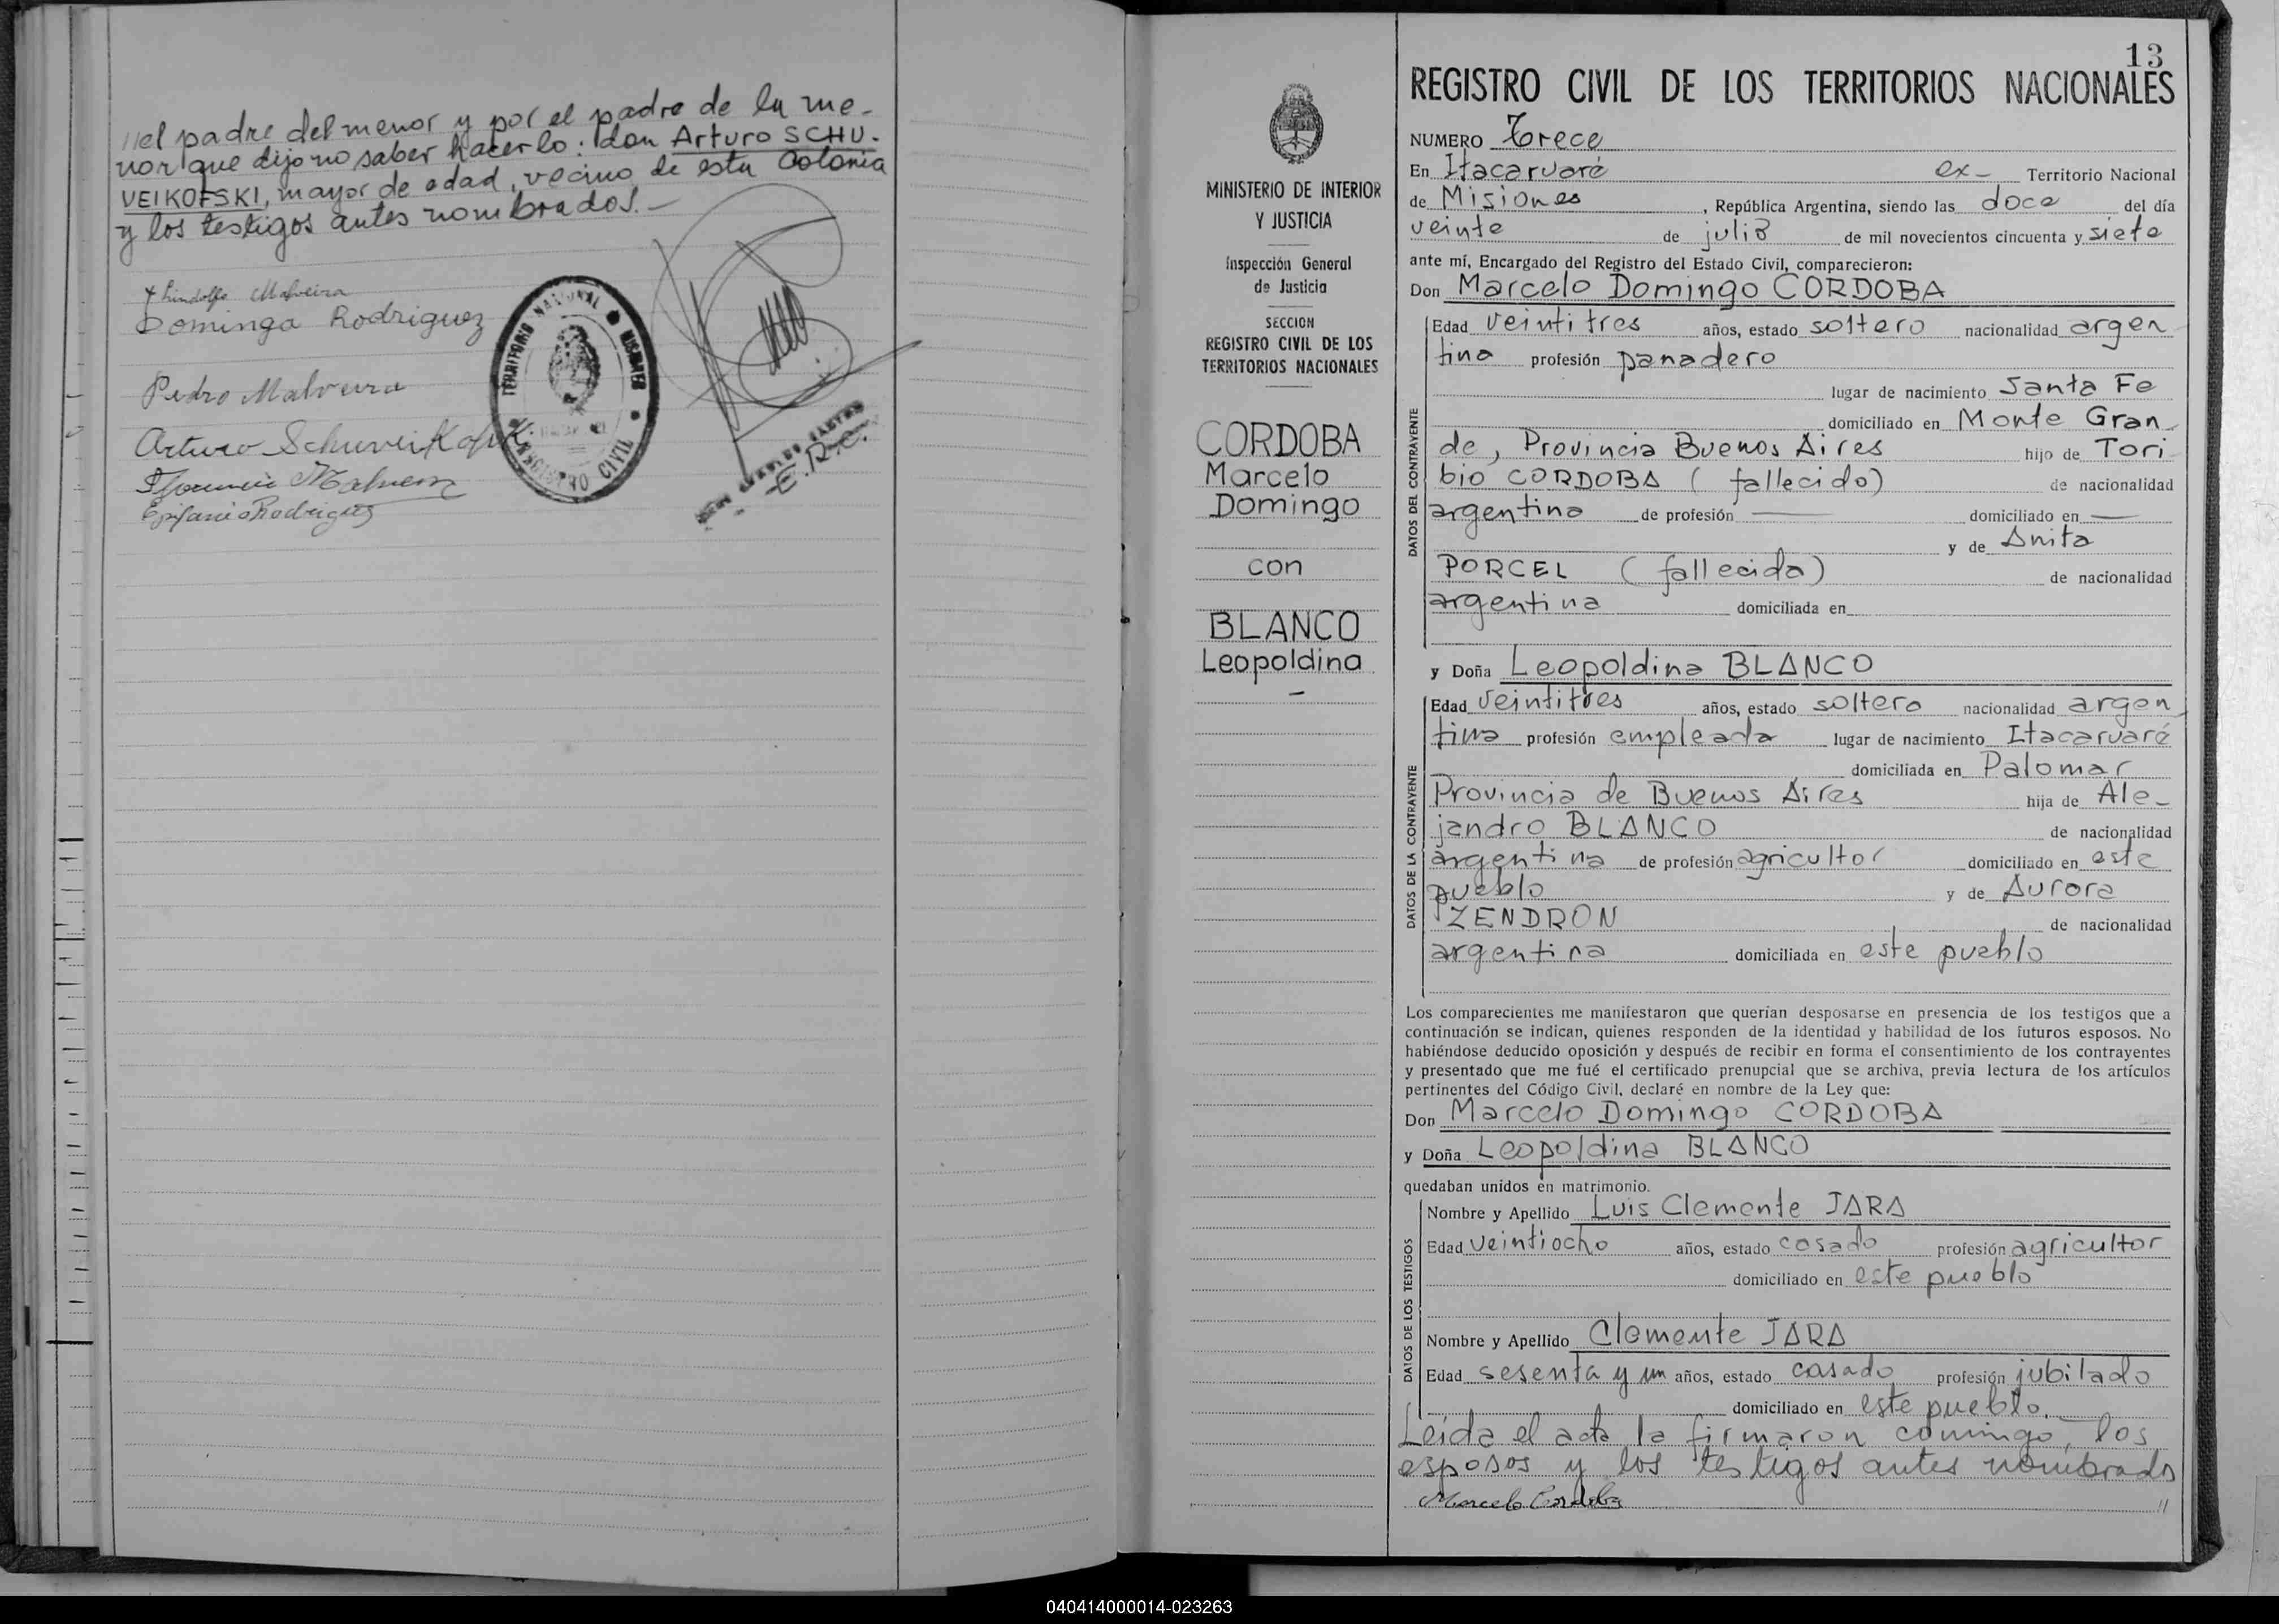 //el padre del menor y por el padre de la me-
nor que dijo no saber hacerlo: don Arturo SCHU-
VEIKOFSKI, mayor de edad, vecino de esta Colonia
y los testigos antes nombrados.-
Lindolfo Malveira
Dominga Rodriguez
Pedro Malveira
Arturo Schuveikofski
Malveira
Epifanio Rodriguez
TERRITORIO NACIONAL MISIONES
REGISTRO CIVIL
E.R.C.
13
REGISTRO CIVIL DE LOS TERRITORIOS NACIONALES
MINISTERIO DE INTERIOR
Y JUSTICIA
Inspección General
de Justicia
SECCION
REGISTRO CIVIL DE LOS
TERRITORIOS NACIONALES
CORDOBA
Marcelo
Domingo
con
BLANCO
Leopoldina
-
NUMERO Trece
En Itacaruaré ex- Territorio Nacional
de Misiones, República Argentina, siendo las doce del día
veinte de julio de mil novecientos cincuenta y siete
ante mí, Encargado del Registro del Estado Civil, comparecieron:
Don Marcelo Domingo CORDOBA
DATOS DEL CONTRAYENTE
Edad veintitres años, estado soltero nacionalidad argen
tina profesión panadero
lugar de nacimiento Santa Fe
domiciliado en Monte Gran
de, Provincia Buenos Aires hijo de Tori
bio CORDOBA (fallecido) de nacionalidad
argentina de profesión — domiciliado en —
y de Anita
PORCEL (fallecida) de nacionalidad
argentina domiciliada en
y Doña Leopoldina BLANCO
DATOS DE LA CONTRAYENTE
Edad veintitres años, estado soltero nacionalidad argen
tina profesión empleada lugar de nacimiento Itacaruaré
domiciliada en Palomar
Provincia de Buenos Aires hija de Ale-
jandro BLANCO de nacionalidad
argentina de profesión agricultor domiciliado en este
pueblo y de Aurora
ZENDRON de nacionalidad
argentina domiciliada en este pueblo
Los comparecientes me manifestaron que querían desposarse en presencia de los testigos que a
continuación se indican, quienes responden de la identidad y habilidad de los futuros esposos. No
habiéndose deducido oposición y después de recibir en forma el consentimiento de los contrayentes
y presentado que me fué el certificado prenupcial que se archiva, previa lectura de los artículos
pertinentes del Código Civil, declaré en nombre de la Ley que:
Don Marcelo Domingo CORDOBA
y Doña Leopoldina BLANCO
quedaban unidos en matrimonio.
DATOS DE LOS TESTIGOS
Nombre y Apellido Luis Clemente JARA
Edad veintiocho años, estado casado profesión agricultor
domiciliado en este pueblo
Nombre y Apellido Clemente JARA
Edad sesenta y un años, estado casado profesión jubilado
domiciliado en este pueblo.
Leida el acta la firmaron conmigo, los
esposos y los testigos antes nombrados
Marcelo Cordoba //
040414000014-023263